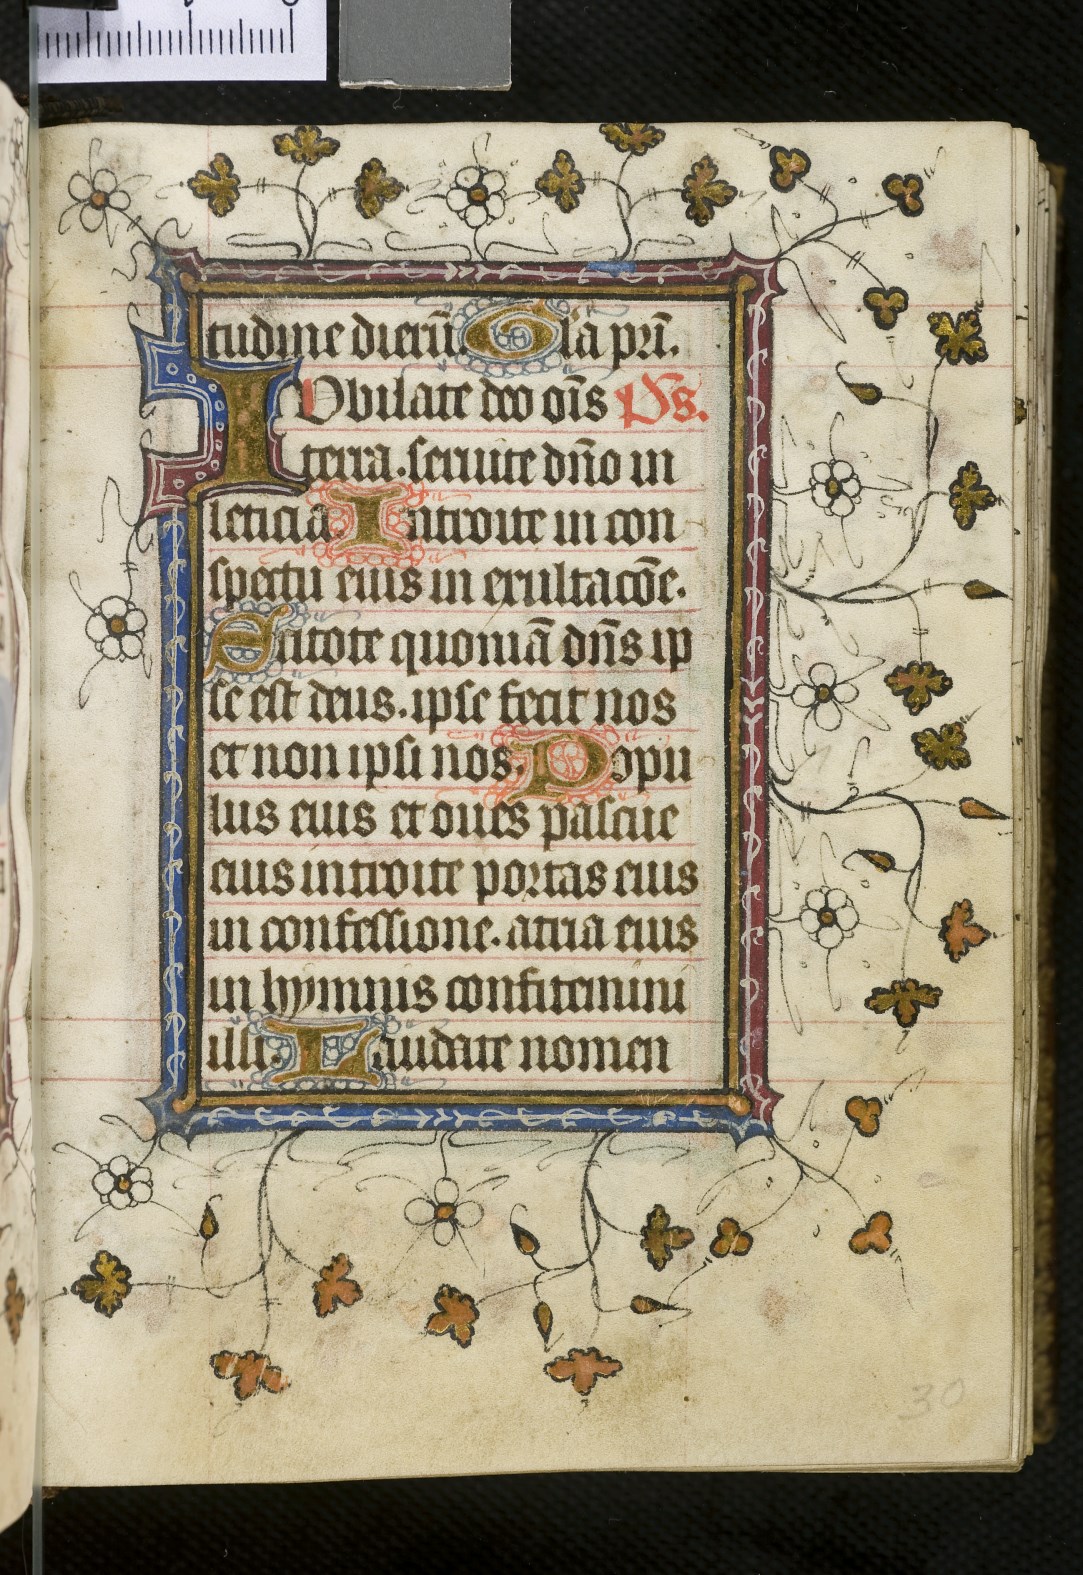 tudine dierū. Gla pr̄i.
IVbilate deo oīs Ps.
terra. seruite dn̄o in
leticia. Introite in con
spectu eius in exultacōe.
Scitote quoniā dn̄s ip
se est deus. ipse fecit nos
et non ipsi nos. Popu
lus eius et oues pascue
eius introite portas eius
in confessione. atria eius
in hymnis confitemini
illi. Laudate nomen
30